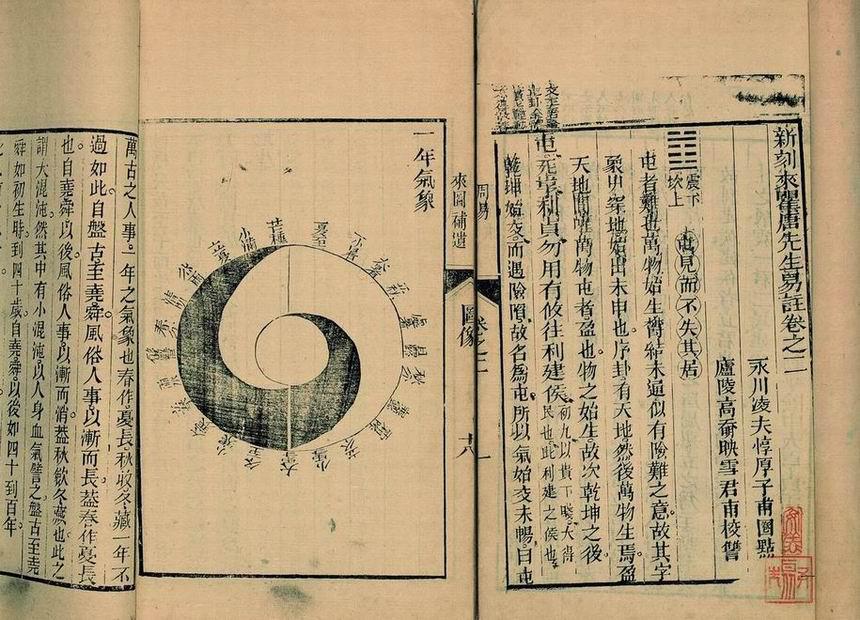 新刻來瞿唐先生易註卷之二
永川淩夫惇厚子甫圈點
廬陵高奣映雪君甫校讐
震下
坎上
屯見而不失其居
屯者難也萬物始生鬱結未通似有險難之意故其字
象屮穿地始出未申也序卦有天地然後萬物生焉盈
天地間唯萬物屯者盈也物之始生故次乾坤之後
屯元亨利貞勿用有攸往利建侯初九以貴下賤大得
民也此利建之侯也
乾坤始交而遇險陷故名為屯所以氣始交未暢曰屯
周易
卷之二
一
來圖補遺
圖像
十八
一年氣象
芒種
夏至
小暑
大暑
小雪
大雪
冬至
小滿
萬古之人事一年之氣象也春作夏長秋收冬藏一年不
過如此自盤古至堯舜風俗人事以漸而長蓋春作夏長
也自堯舜以後風俗人事以漸而消蓋秋斂冬藏也此之
謂大混沌然其中有小混沌以人身血氣譬之盤古至堯
舜如初生時到四十歲自堯舜以後如四十到百年